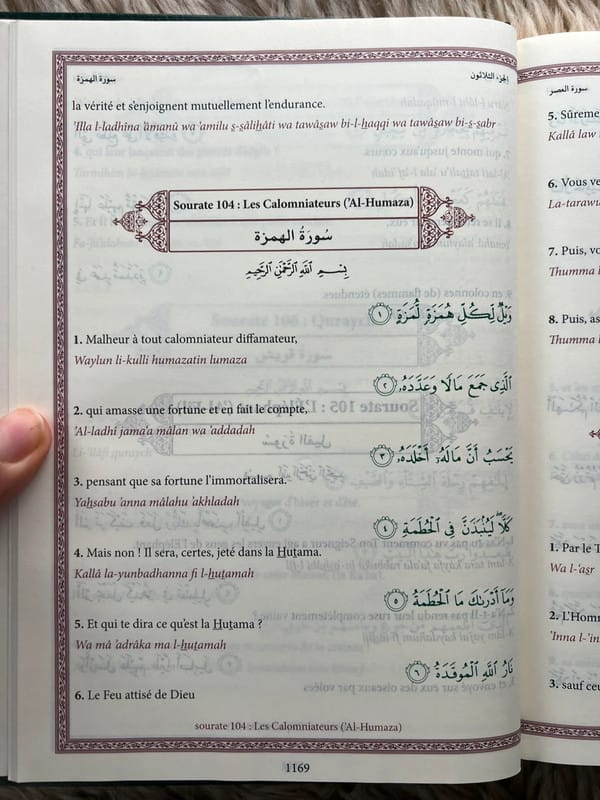 سورة الهمزة
الجزء الثلاثون
la vérité et s'enjoignent mutuellement l'endurance.
'Illa l-ladhîna 'âmanû wa 'amilu s-sâlihâti wa tawâsaw bi-l-haqqi wa tawâsaw bi-s-sabr
Sourate 104 : Les Calomniateurs ('Al-Humaza)
سُورَةُ الهمزة
بِسْمِ ٱللَّهِ ٱلرَّحْمَٰنِ ٱلرَّحِيمِ
وَيْلٌ لِّكُلِّ هُمَزَةٍ لُّمَزَةٍ ١
1. Malheur à tout calomniateur diffamateur,
Waylun li-kulli humazatin lumaza
ٱلَّذِى جَمَعَ مَالًا وَعَدَّدَهُۥ ٢
2. qui amasse une fortune et en fait le compte,
'Al-ladhî jama'a mâlan wa 'addadah
يَحْسَبُ أَنَّ مَالَهُۥٓ أَخْلَدَهُۥ ٣
3. pensant que sa fortune l'immortalisera.
Yahsabu 'anna mâlahu 'akhladah
كَلَّا ۖ لَيُنۢبَذَنَّ فِى ٱلْحُطَمَةِ ٤
4. Mais non ! Il sera, certes, jeté dans la Hutama.
Kallâ la-yunbadhanna fi l-hutamah
وَمَآ أَدْرَىٰكَ مَا ٱلْحُطَمَةُ ٥
5. Et qui te dira ce qu'est la Hutama ?
Wa mâ 'adrâka ma l-hutamah
نَارُ ٱللَّهِ ٱلْمُوقَدَةُ ٦
6. Le Feu attisé de Dieu
sourate 104 : Les Calomniateurs ('Al-Humaza)
1169
سورة العصر
5. Sûreme
Kallâ law
6. Vous ve
La-tarawu
7. Puis, vo
Thumma l
8. Puis, as
Thumma l
1. Par le T
Wa l-'asr
2. L'Hom
'Inna l-'in
3. sauf ceu